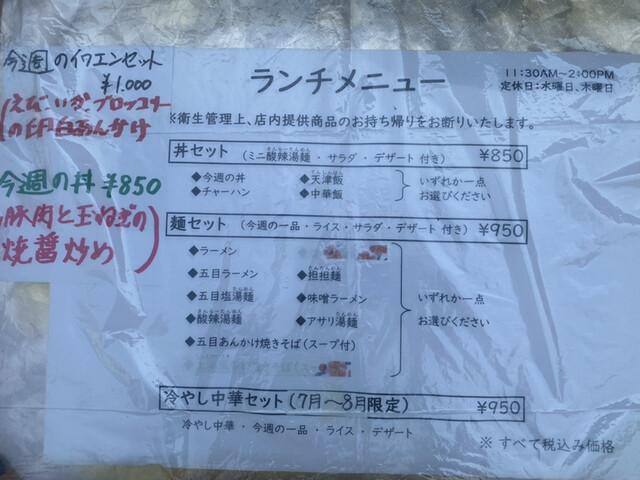 今週のイワエンセット
¥1.000
えび・いか・ブロッコリー
の卵白あんかけ
今週の丼 ¥850
豚肉と玉ねぎの
焼醤炒め
ランチメニュー
11:30AM~2:00PM
定休日:水曜日、木曜日
※衛生管理上、店内提供商品のお持ち帰りをお断りいたします。
丼セット (ミニ酸辣湯麺・サラダ・デザート 付き) ¥850
◆今週の丼 ◆天津飯
◆チャーハン ◆中華飯
いずれか一点
お選びください
麺セット (今週の一品・ライス・サラダ・デザート 付き) ¥950
◆ラーメン
◆五目ラーメン ◆担担麺
◆五目塩湯麺 ◆味噌ラーメン
◆酸辣湯麺 ◆アサリ湯麺
◆五目あんかけ焼きそば(スープ付)
いずれか一点
お選びください
冷やし中華セット(7月~8月限定) ¥950
冷やし中華・今週の一品・ライス・デザート
※ すべて税込み価格